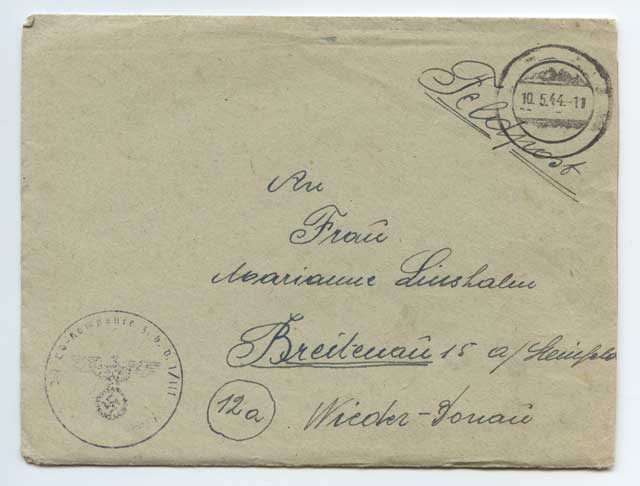 Feldpost
10.5.44.-11
An
Frau
Marianne Linshalm
Breitenau 15 a/Steinfeld
12a
Nieder-Donau
Kompanie z. b. V.